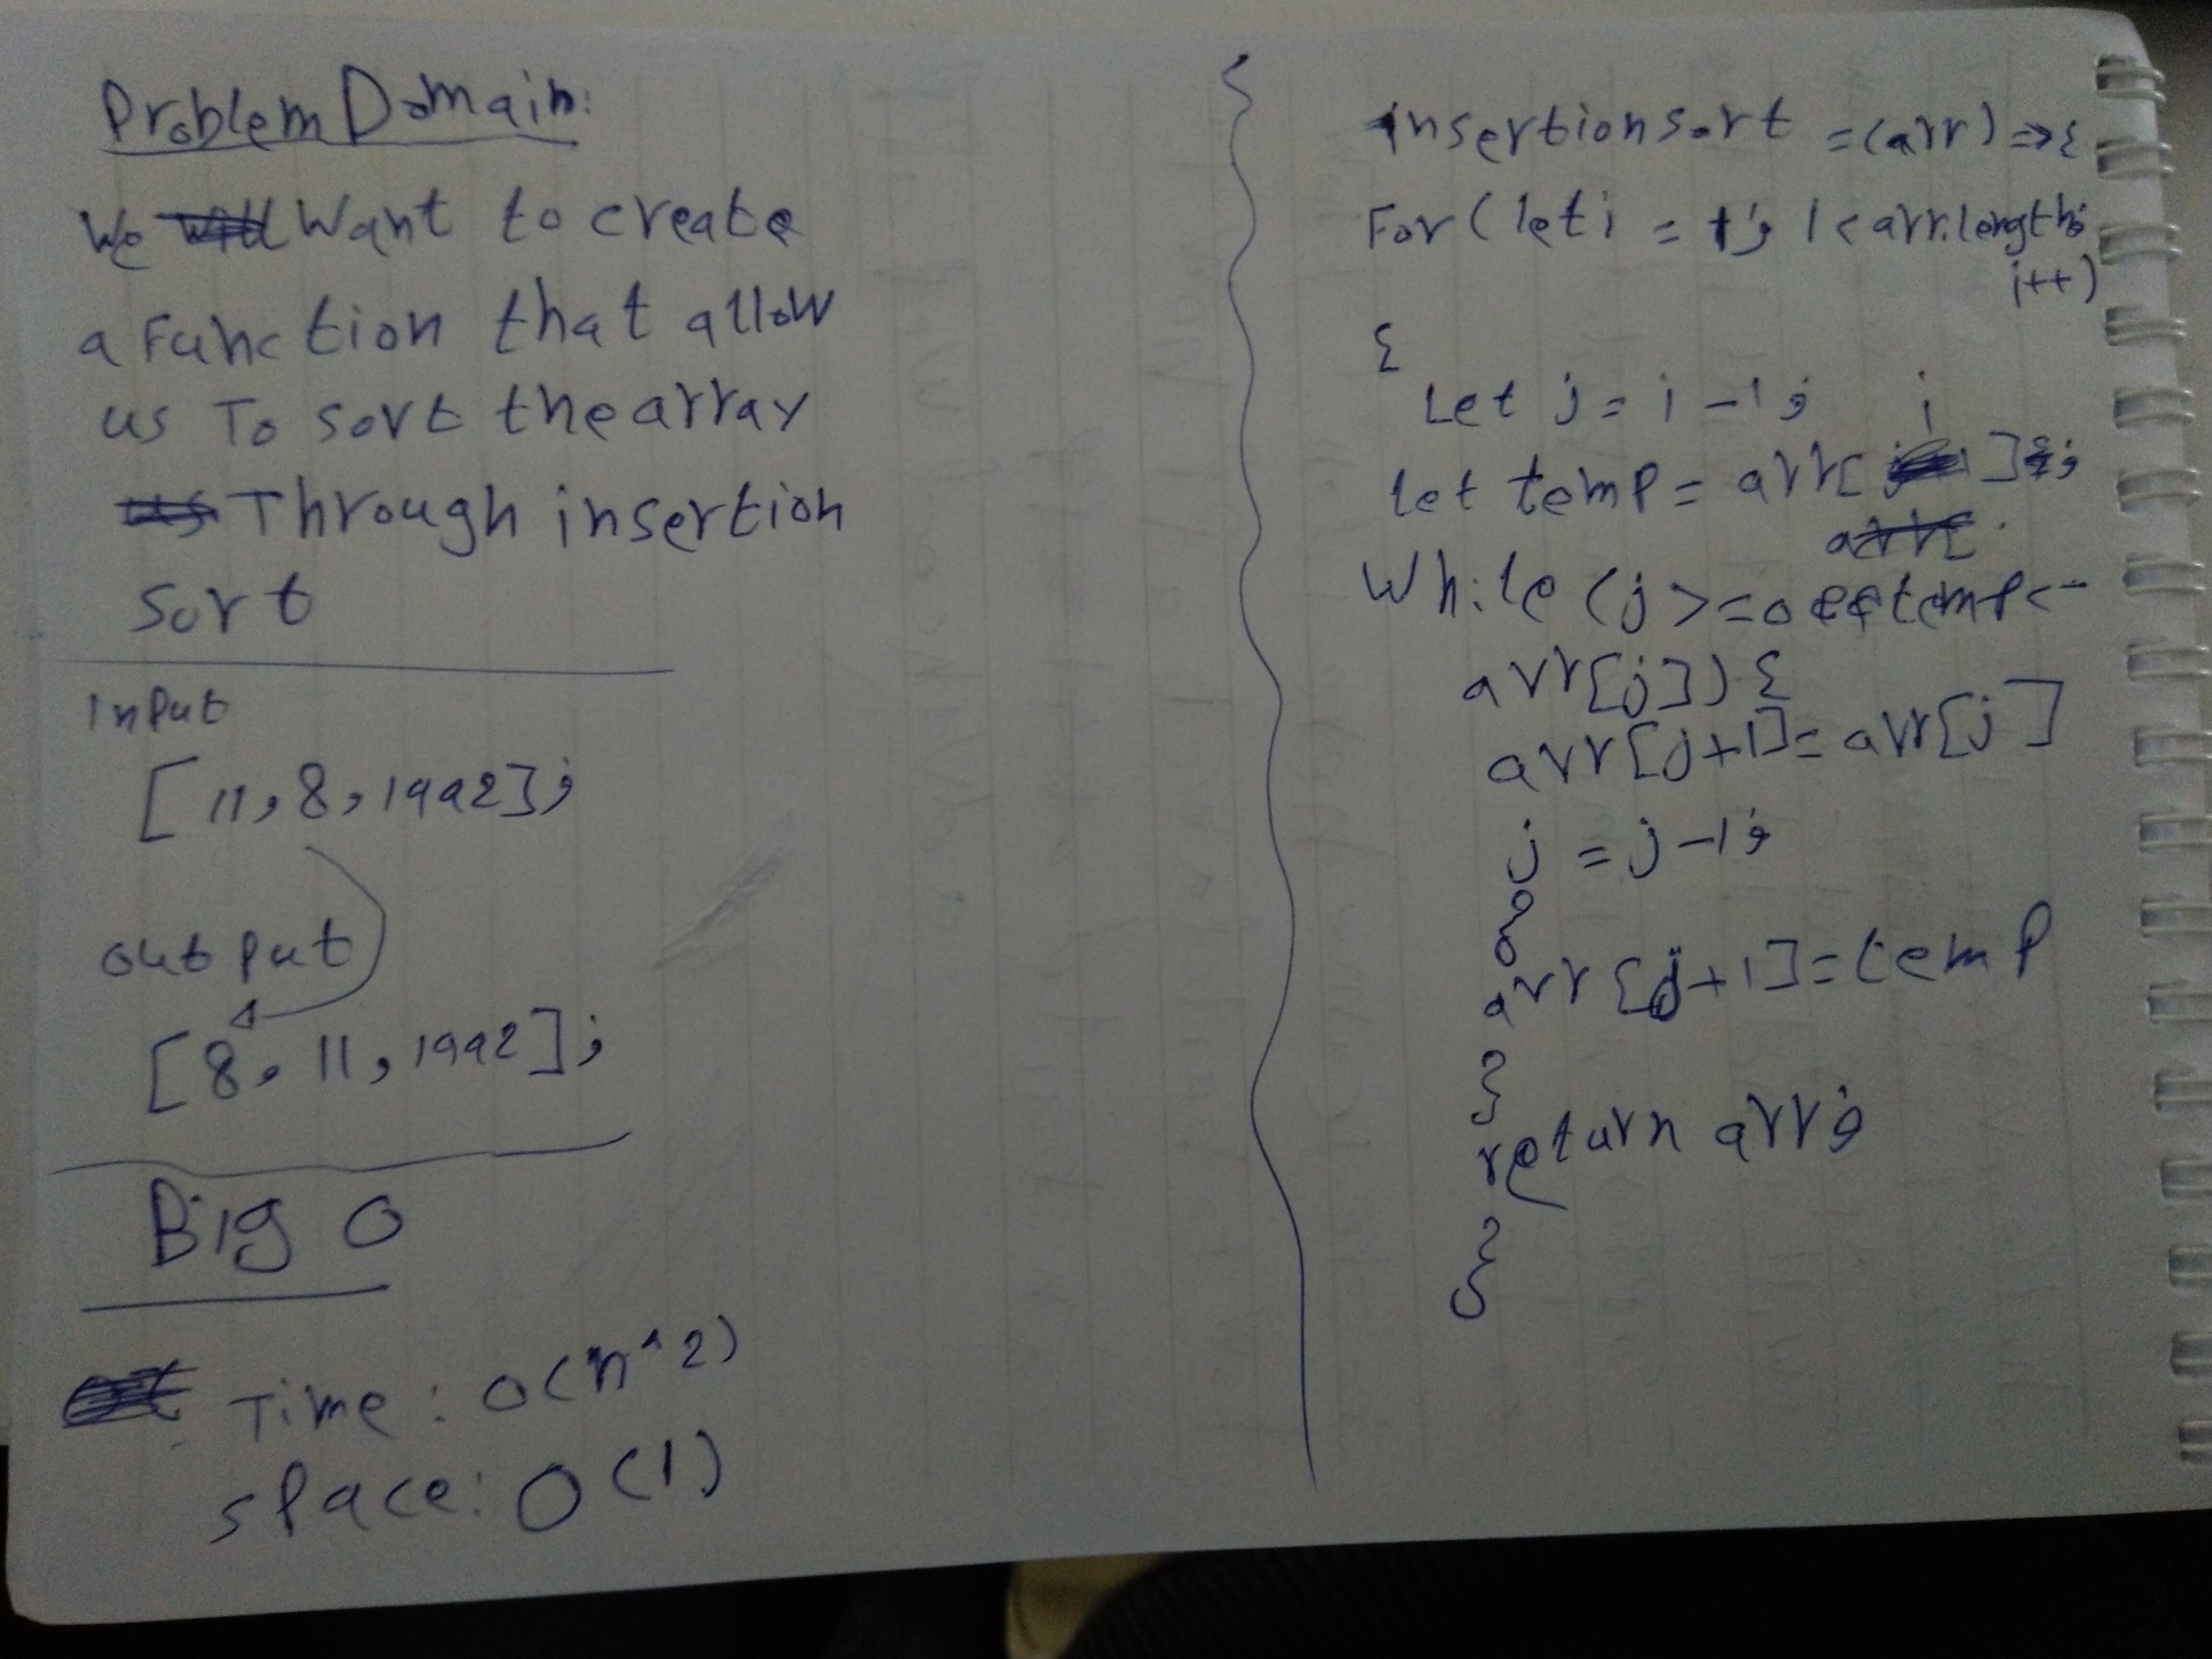 Problem Domain:
We want to create
a Function that allow
us To sort the array
Through insertion
Sort
input
[11,8,1992];
output
[8,11,1992];
Big O
Time: O(n^2)
space: O(1)
insertionsort = (arr) => {
For(let i = 1; i < arr.length;
i++)
{
Let j = i - 1;
let temp = arr[i];
While (j >= 0 && temp <
arr[j]) {
arr[j+1] = arr[j]
j = j - 1;
}
arr[j+1] = temp
}
return arr;
}